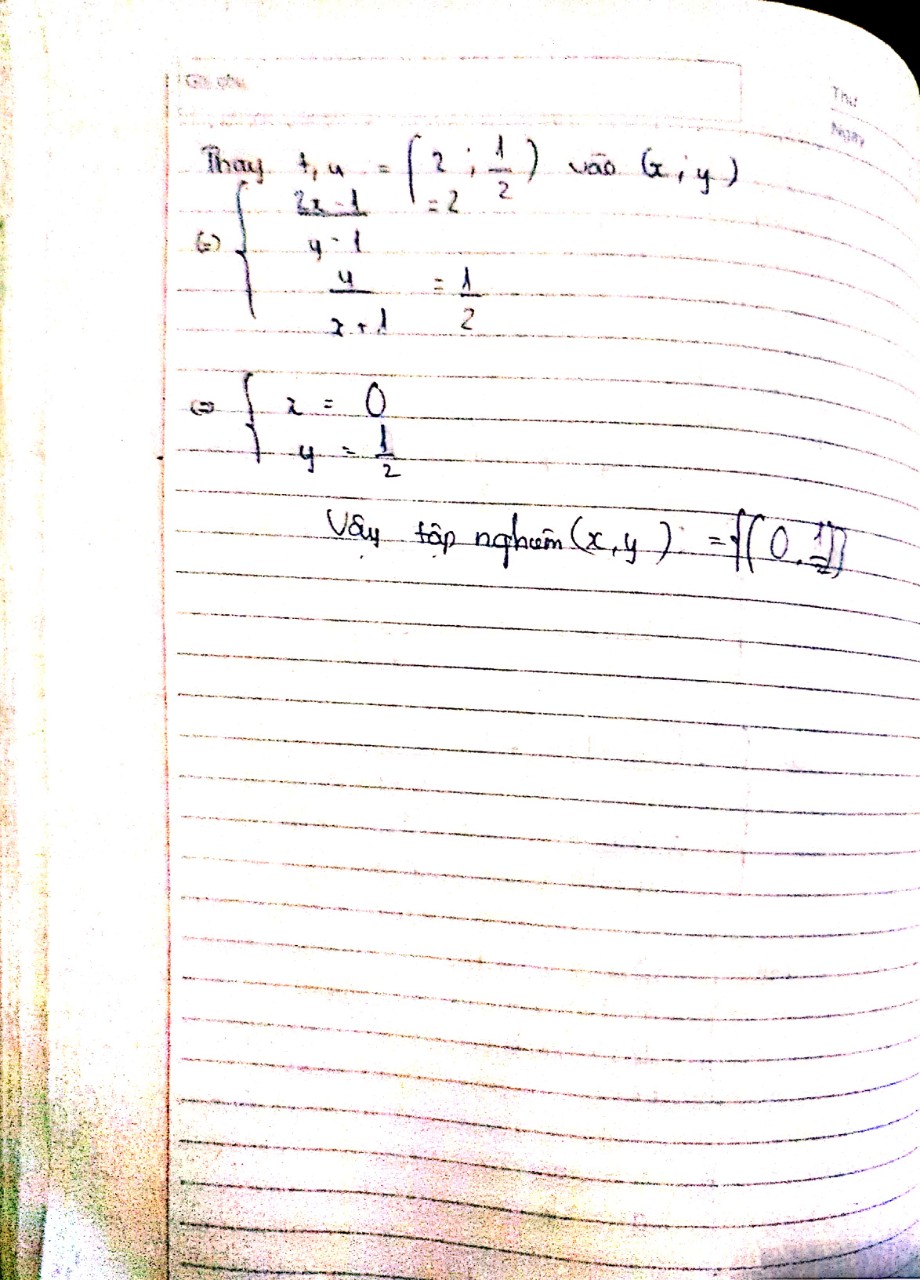 Ghi chú
Thứ
Ngày
Thay t, u = (2 ; 1/2) vào (x ; y)
(=) { (2x - 1)/(y - 1) = 2
y/(x + 1) = 1/2
(=) { x = 0
y = 1/2
Vậy tập nghiệm (x, y) = {(0, 1/2)}